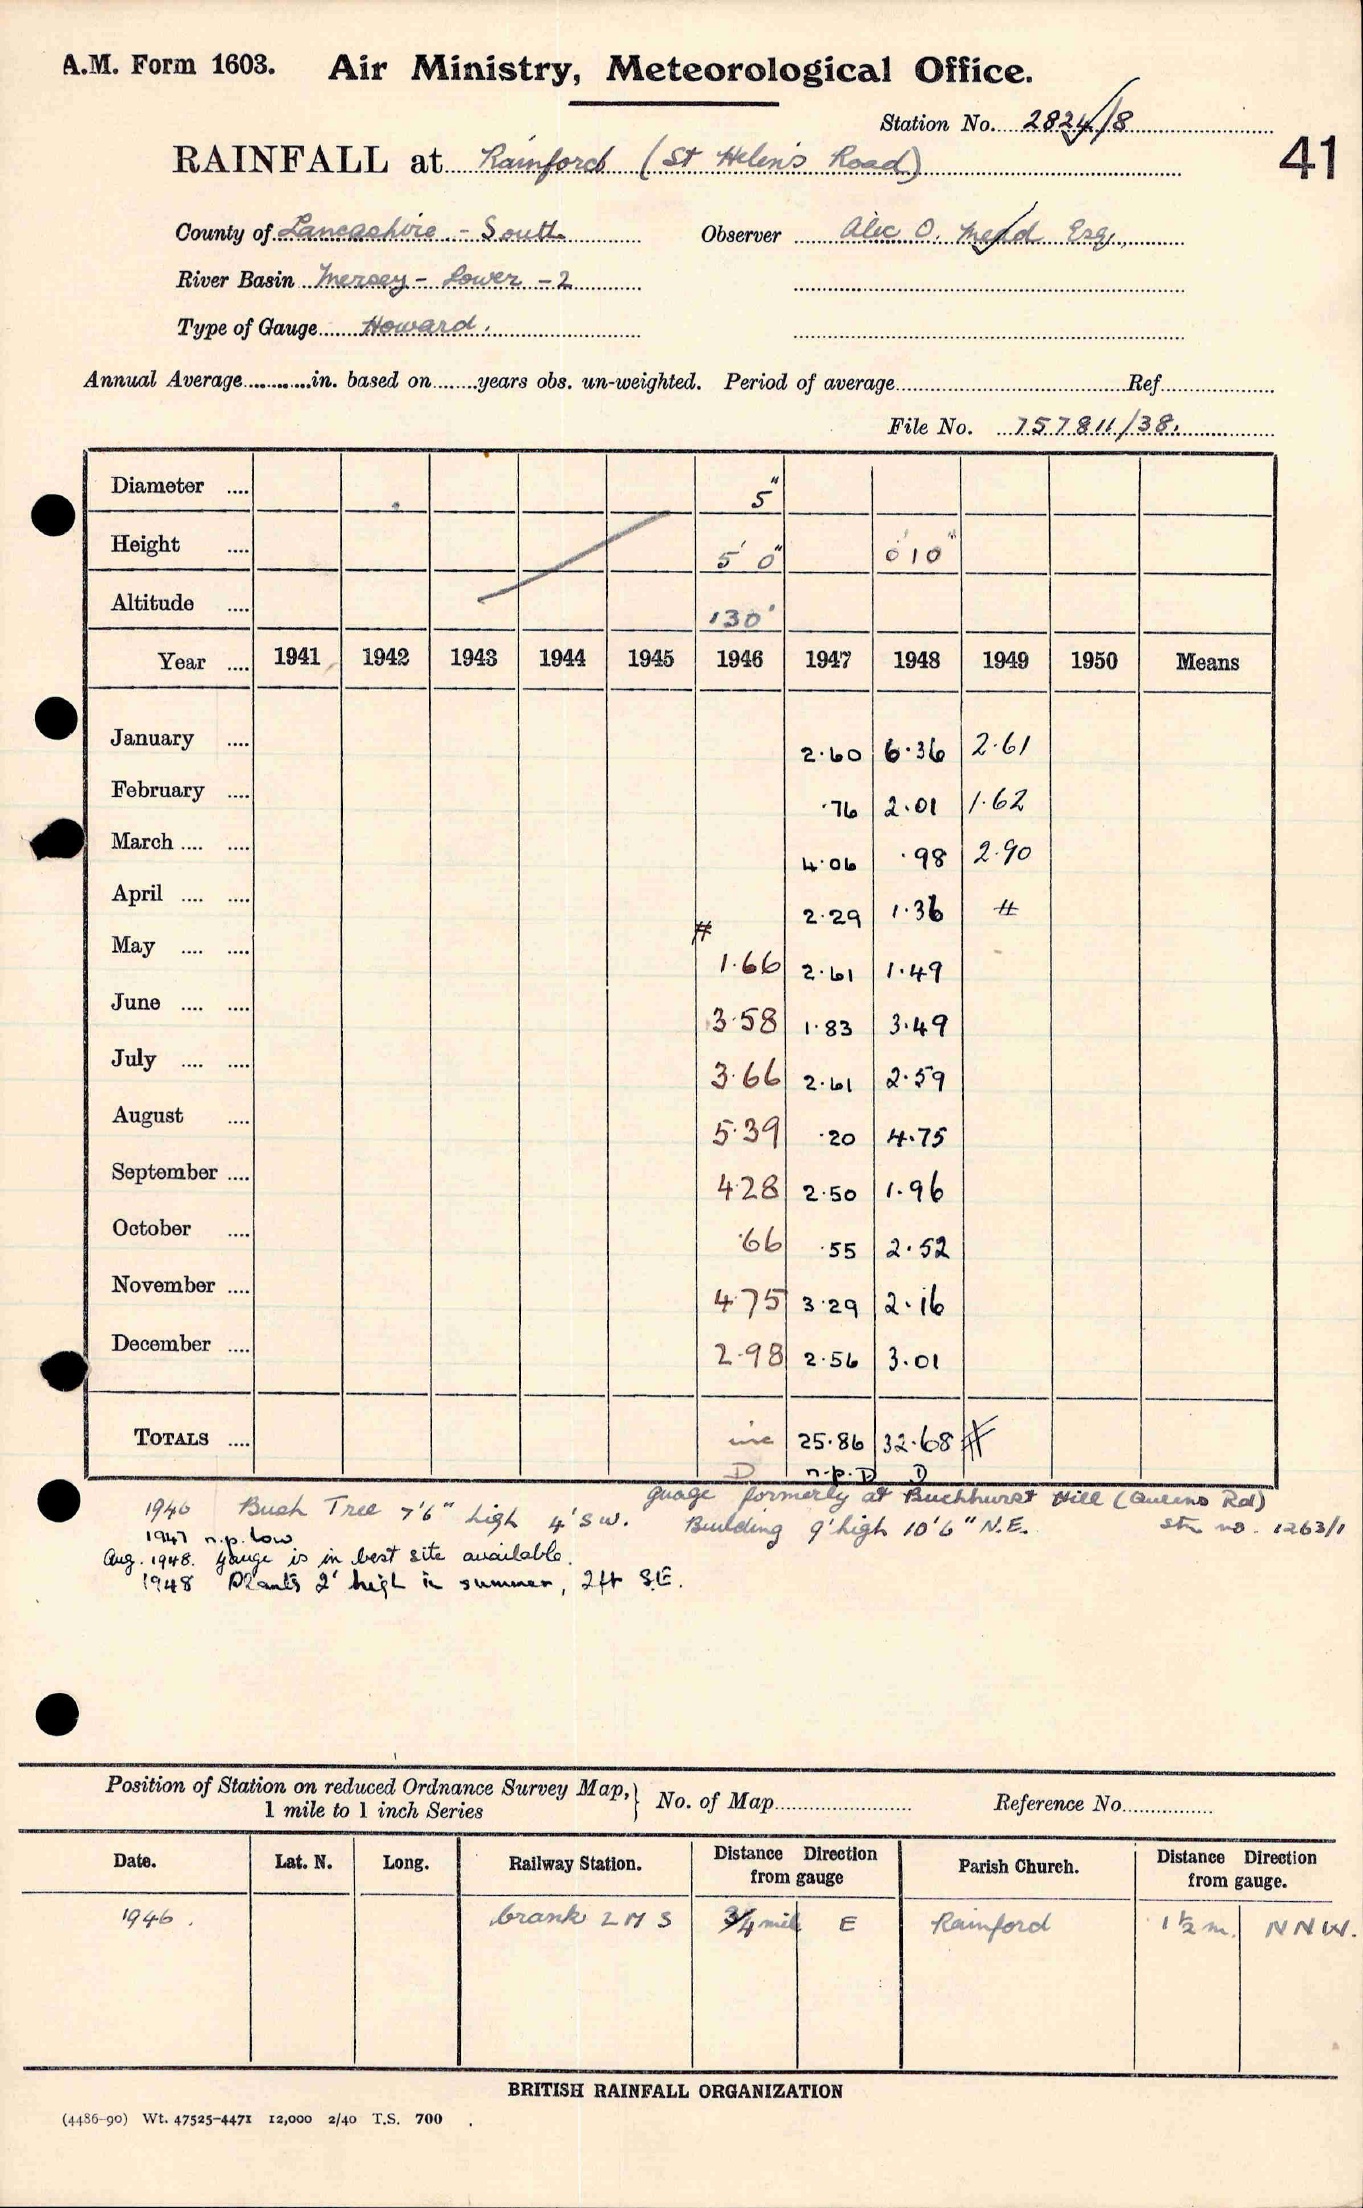 A.M. Form 1603. Air Ministry, Meteorological Office.
Station No. 2824/8
41
RAINFALL at Rainford (St Helens Road)
County of Lancashire - South Observer Alec O. Medd Esq.
River Basin Mersey - Lower - 2
Type of Gauge Howard.
Annual Average............in. based on........years obs. un-weighted. Period of average Ref
File No. 757811/38.
Diameter .... 5"
Height .... 5' 0" 0' 10"
Altitude .... 130'
Year .... 1941 1942 1943 1944 1945 1946 1947 1948 1949 1950 Means
January .... 2.60 6.36 2.61
February .... .76 2.01 1.62
March .... .... 4.06 .98 2.90
April .... .... 2.29 1.36 #
#
May .... .... 1.66 2.61 1.49
June .... .... 3.58 1.83 3.49
July .... .... 3.66 2.61 2.59
August .... 5.39 .20 4.75
September .... 4.28 2.50 1.96
October .... .66 .55 2.52
November .... 4.75 3.29 2.16
December .... 2.98 2.56 3.01
TOTALS .... inc 25.86 32.68 #
D n.p. D D
guage formerly at Buckhurst Hill (Queens Rd)
stn no. 1263/1
1946 Bush Tree 7'6" high 4' SW. Building 9' high 10'6" N.E.
1947 n.p. low
Aug. 1948. gauge is in best site available.
1948 Plants 2' high in summer, 2ft S.E.
Position of Station on reduced Ordnance Survey Map, 1 mile to 1 inch Series } No. of Map Reference No
Date. Lat. N. Long. Railway Station. Distance Direction from gauge Parish Church. Distance Direction from gauge.
1946. Crank L M S 3/4 mile E Rainford 1 1/2 m. N N W.
BRITISH RAINFALL ORGANIZATION
(4486-90) Wt. 47525-4471 12,000 2/40 T.S. 700